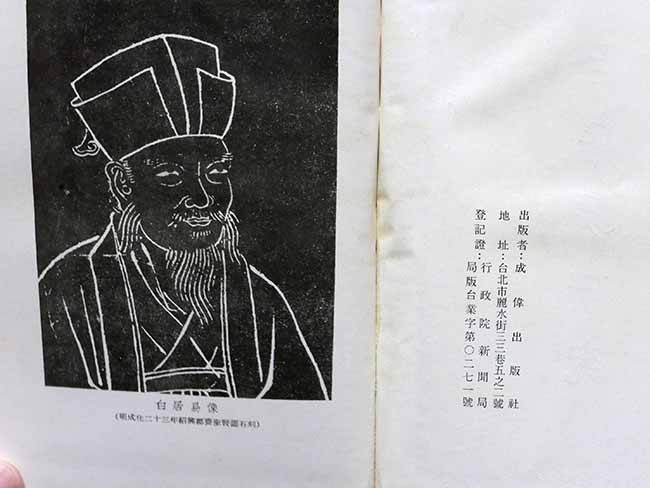 白居易像
(明成化二十三年紹興郡齋聖賢圖石刻)
出版者：成偉出版社
地址：台北市麗水街三三巷五之二號
登記證：行政院新聞局
局版台業字第〇二七一號